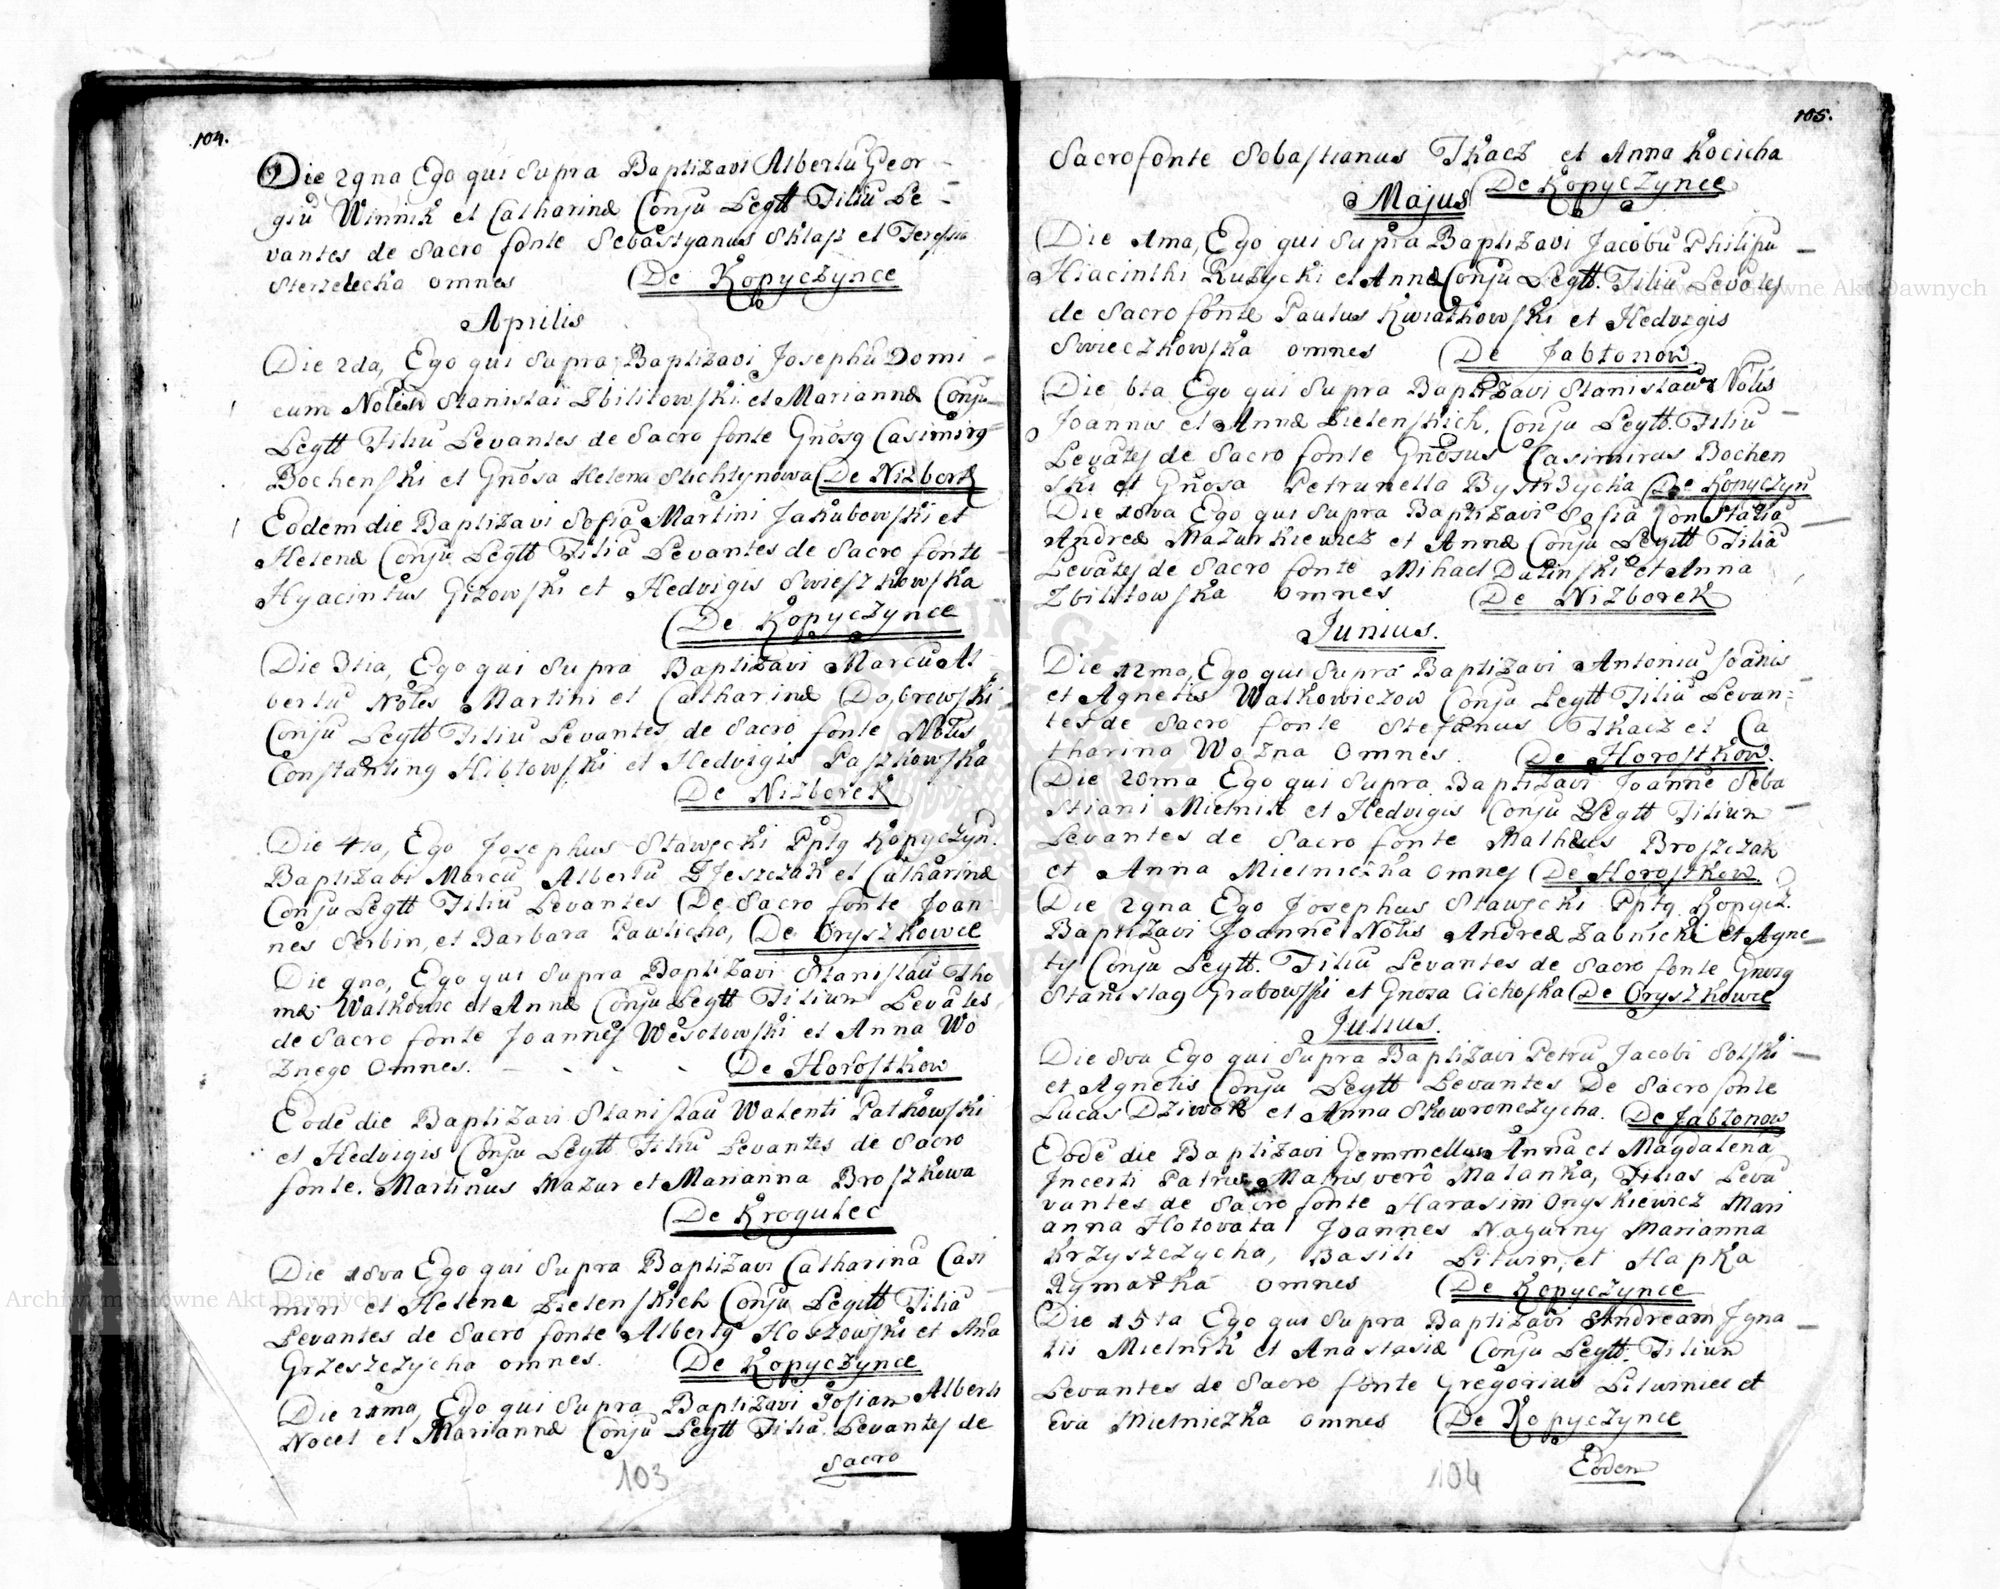 104.
Die 29na Ego qui Supra Baptizavi Albertū Geor-
giū Winnik et Catharinæ Conju Legtt Filiū Le-
vantes de Sacro fonte Sebastyanus Sklasz et Teressia
Sterzelecka omnes De Kopyczynce
Aprilis
Die 2da, Ego qui Supra Baptizavi Josephū Domi-
cum Stanislai Zbilitowski et Mariannæ Conju
Legtt Filiū Levantes de Sacro fonte Gnōsq Casimirq
Bochenski et Gnōsa Helena Stichlynowa De Nizbork
Eodem die Baptizavi Sofiā Martini Jakubowski et
Helenæ Conju Legtt Filiā Levantes de Sacro fonte
Hyacintus Gizowski et Hedvigis Swieszkowska
De Kopyczynce
Die 3tia, Ego qui Supra Baptizavi Marcū Al
bertū Nōles Martini et Catharinæ Dąbrowski
Conju Legtt Filiū Levantes de Sacro fonte Nōlus
Constantinq Hibtowski et Hedvigis Paszkowska
De Nizborek
Die 4ta, Ego Josephus Stawecki Pptq Kopyczyn.
Baptizavi Marcū Albertū Jeszczak et Catharinæ
Conju Legtt Filiū Levantes De Sacro fonte Joan
nes Serbin, et Barbara Pawlicha, De Oryszkowce
Die 9na, Ego qui Supra Baptizavi Stanislaū Tho
mæ Walkowic et Annæ Conju Legtt Filium Levātes
de Sacro fonte Joannes Wesolowski et Anna Wo
znego Omnes. - - - - De Horostkow
Eodē die Baptizavi Stanislaū Walenti Patkowski
et Hedvigis Conju Legtt Filiū Levantes de Sacro
fonte. Martinus Mazur et Marianna Broszkowa
De Krogulec
Die 18va Ego qui Supra Baptizavi Catharinā Casi
miri et Helene Zielenskich Conju Legitt Filiā
Levantes de Sacro fonte Albertq Hostowski et Aña
Grzeszczycha omnes. De Kopyczynce
Die 21ma Ego qui Supra Baptizavi Sofiam Alberti
Nocel et Mariannæ Conju Legtt Filiā Levantes de
Sacro
103
105.
Sacro fonte Sobastianus Tkacz et Anna Kocicha
De Kopyczynce
Majus
Die 1ma, Ego qui Supra Baptizavi Jacobū Philipū
Hiacinthi Ruzycki et Annæ Conju Legtt. Filiū Levātes
de Sacro fonte Paulus Kwiatkowski et Hedvigis
Swieczkowska omnes De Jabtonow
Die 6ta Ego qui Supra Baptizavi Stanislaw Nōlis
Joannis et Annæ Zielenskich, Conju Legtt. Filiū
Levātes de Sacro fonte Gnōsus Casimirus Bochen
ski et Gnōsa Petrunella Bystrzycka De Kopyczyn
Die 18va Ego qui Supra Baptizavi Sofiā Constatiā
Andreæ Mazurkiewicz et Annæ Conju Legitt Filiā
Levātes de Sacro fonte Mihael Dulinski et Anna
Zbilitowska omnes De Nizborek
Junius.
Die 12ma, Ego qui Supra Baptizavi Antoniū Joānis
et Agnetis Walkowiczow Conju Legtt Filiū Levan-
tes de Sacro fonte Stefanus Tkacz et Ca
tharina Wozna Omnes. De Horostkow.
Die 20ma Ego qui Supra Baptizavi Joannē Seba
stiani Mielnik et Hedvigis Conju Legtt Filium
Levantes de Sacro fonte Matheus Broszczak
et Anna Mielniczka omnes De Horostkow.
Die 29na Ego Josephus Stawecki Pptq Kopycz.
Baptizavi Joannē Nōlis Andreæ Zabnicki et Agne-
tis Conju Legtt. Filiū Levantes de Sacro fonte Gnosq
Stanislaq Grabowski et Gnosa Cichoska De Oryszkowce
Julius.
Die 8va Ego qui Supra Baptizavi Petrū Jacobi Solski
et Agnetis Conju Legtt Levantes De Sacro fonte
Lucas Dziwak et Anna Skowronczycha. De Jabtonow
Eodē die Baptizavi Gemmellas Annā et Magdalenā
Incerti Patris Matris verò Malanka, Filias Leva
vantes de Sacro fonte Harasim Onyskiewicz Mari
anna Hotovata Joannes Nagurny Marianna
Krzyszczycha, Basili Litwin, et Hapka
Rymarka omnes De Kopyczynce
Die 15ta Ego qui Supra Baptizavi Andream Igna
tii Mielnik et Anastasiæ Conju Legtt. Filium
Levantes de Sacro fonte Gregorius Litwiniec et
Eva Mielniczka omnes De Kopyczynce
Eodem
104
Archiwum Główne Akt Dawnych
Archiwum Główne Akt Dawnych